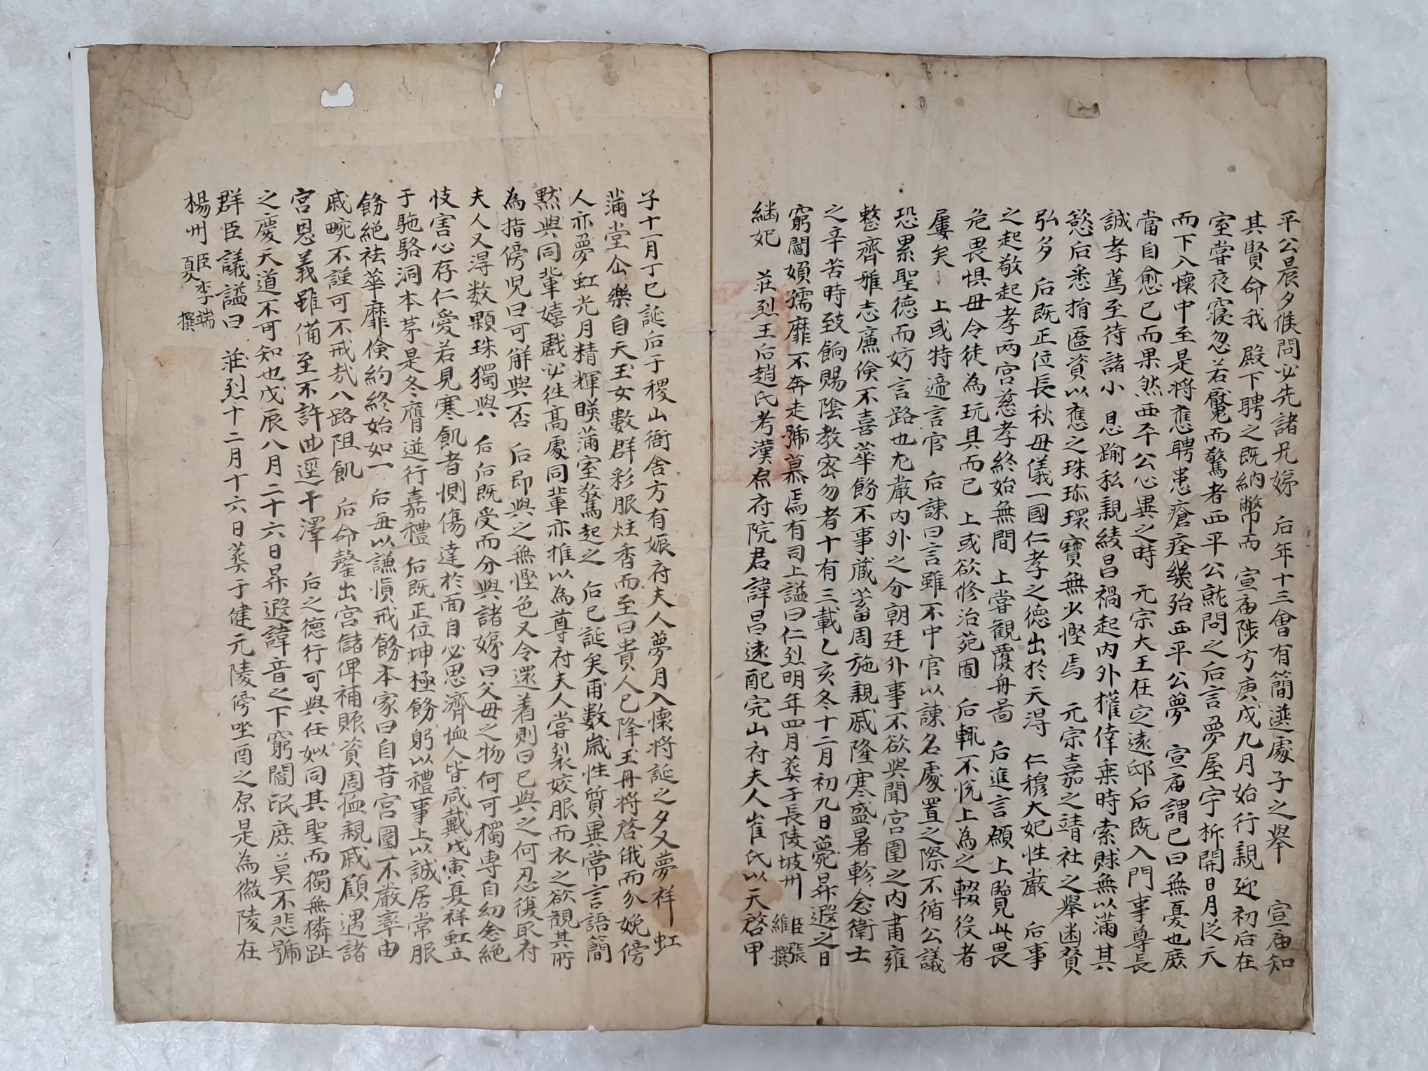 平公晨夕候問必先諸兄娣 后年十三會有簡選處子之擧 宣庙知
其賢命我 殿下聘之既納幣而 宣庙陟方庚戌九月始行親迎初后在
室嘗夜寝忽若魘而驚者西平公就問之后言夢屋宇析開日月從天
而下入懷中至是将應聘患瘡症幾殆西平公夢 宣庙謂已曰無憂也疾
當自愈已而果然西平公心異之時 元宗大王在定遠邸后既入門事尊長
誠孝篤至待諸小 恩踰私親綾昌禍起内外權倖乘時索賕無以滿其
慾后悉捐匳資以應之珠珎環寶無少慳焉 元宗嘉之靖社之擧困賛
弘多 后既正位長秋母儀一國仁孝之德出於天得 仁穆大妃性嚴 后事
之起敬起孝两宮慈孝終始無間 上嘗觀覆舟啚 后進言願上覽此畏
危畏惧毋令徒為玩具而已 上或欲修治苑囿 后輒不悅上為之輟役者
屢矣 上或特遞言官 后諫曰言雖不中官以諫名處置之際不循公議
恐累聖德而妨言路也尤嚴内外之分朝廷外事不欲與聞宮圍之内肅雍
整齊雅志廉儉不喜華餙不事蔵蓄周施親戚隆寒盛暑軫念衛士
之辛苦時致餉賜陰教密勿者十有三載乙亥冬十二月初九日薨昇遐之日
窮閭嫠孺靡不奔走號慕焉有司上謚曰仁烈明年四月葬于長陵坡州 臣張維撰
継妃 莊烈王后趙氏考漢原府院君諱昌遠配完山府夫人崔氏以天啓甲
子十一月丁巳誕后于稷山衙舍方有娠府夫人夢月入懷将誕之夕又夢祥虹
蒲堂仚樂自天玉女數群彩服炷香而至曰貴人已降玉丹将啓俄而分娩傍
人亦夢虹光月精輝暎蒲室驚起之 后已誕矣甫數歲性質異常言語簡
黙與同輩嬉戲必徃高處同輩亦推以為尊府夫人嘗裂姣服而衣之欲觀其所
為指傍児曰可解與否 后即與之無慳色又令還着則曰已與之何忍復取府
夫人又得数顆珠獨與 后后既受而分與諸娣曰父母之物何可獨專自幼忿絶
忮害心存仁愛若見寒飢者惻傷達於面目必思濟恤人皆咸戴戊寅夏祥虹立
于駞駱洞本第是冬膺逆行嘉禮 后既正位坤極餙躬以禮事上以誠居常服
餙絶祛華靡儉約終始如一 后每以謙愼戒餙本家曰自昔宮圍不嚴率由
戚畹不謹可不戒㦲八路阻飢 后命罄出宮儲俾補賑資周恤親戚顧遇諸
宮恩義雖備至不許曲逕干澤 后之德行可與任姒同其聖而獨無麟趾
之慶天道不可知也戊辰八月二十六日昇遐諱音之下窮閭氓庶莫不悲號
群臣議謚曰 莊烈十二月十六日葬于健元陵傍坐酉之原是為徽陵在
楊州 臣李端夏撰